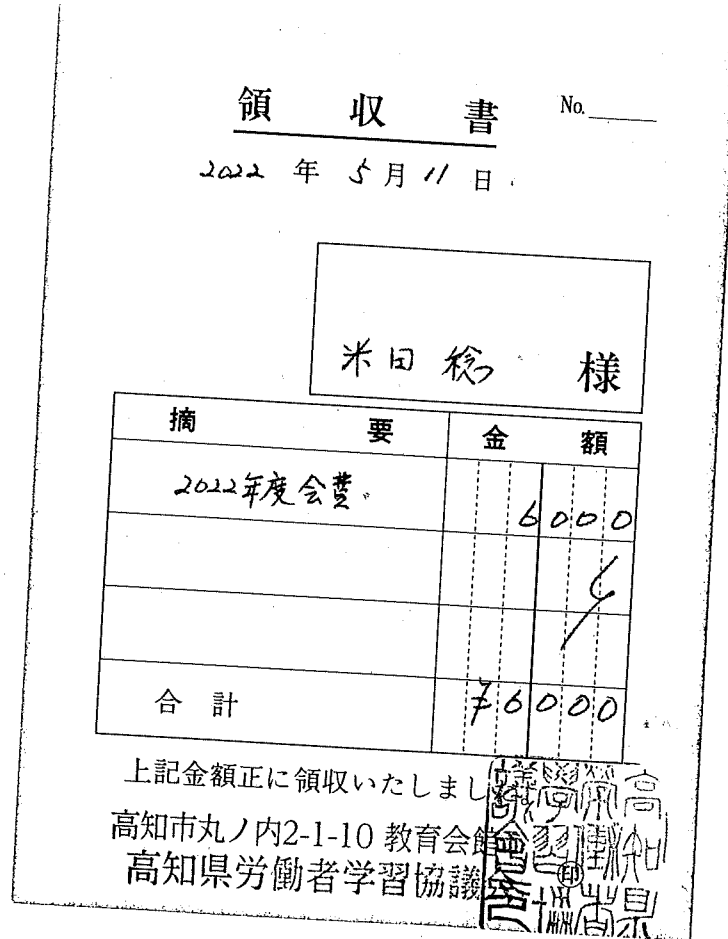 領 収 書 No.
2022 年 5 月 11 日
米田 稔 様
摘 要 金 額
2022年度会費 6000
合 計 ¥6000
上記金額正に領収いたしまし
高知市丸ノ内2-1-10 教育会館
高知県労働者学習協議会